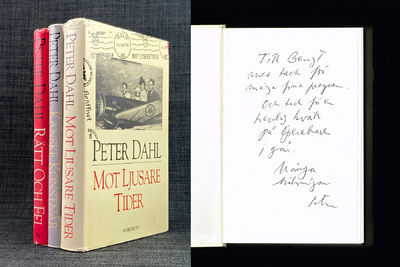 PETER DAHL RÄTT OCH FEL
PETER DAHL
PETER DAHL MOT LJUSARE TIDER
MOT LJUSARE TIDER
PETER DAHL
MOT LJUSARE
TIDER
Till Bengt
med tack för
många fina program.
Och tack för en
kväll
på
i går.
Många
hälsningar
Peter